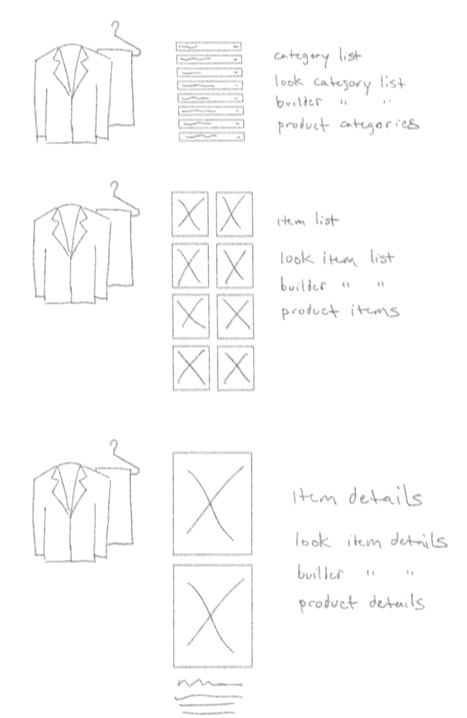 category list
look category list
builder " "
product categories
item list
look item list
builder " "
product items
Item details
look item details
builler " "
product details